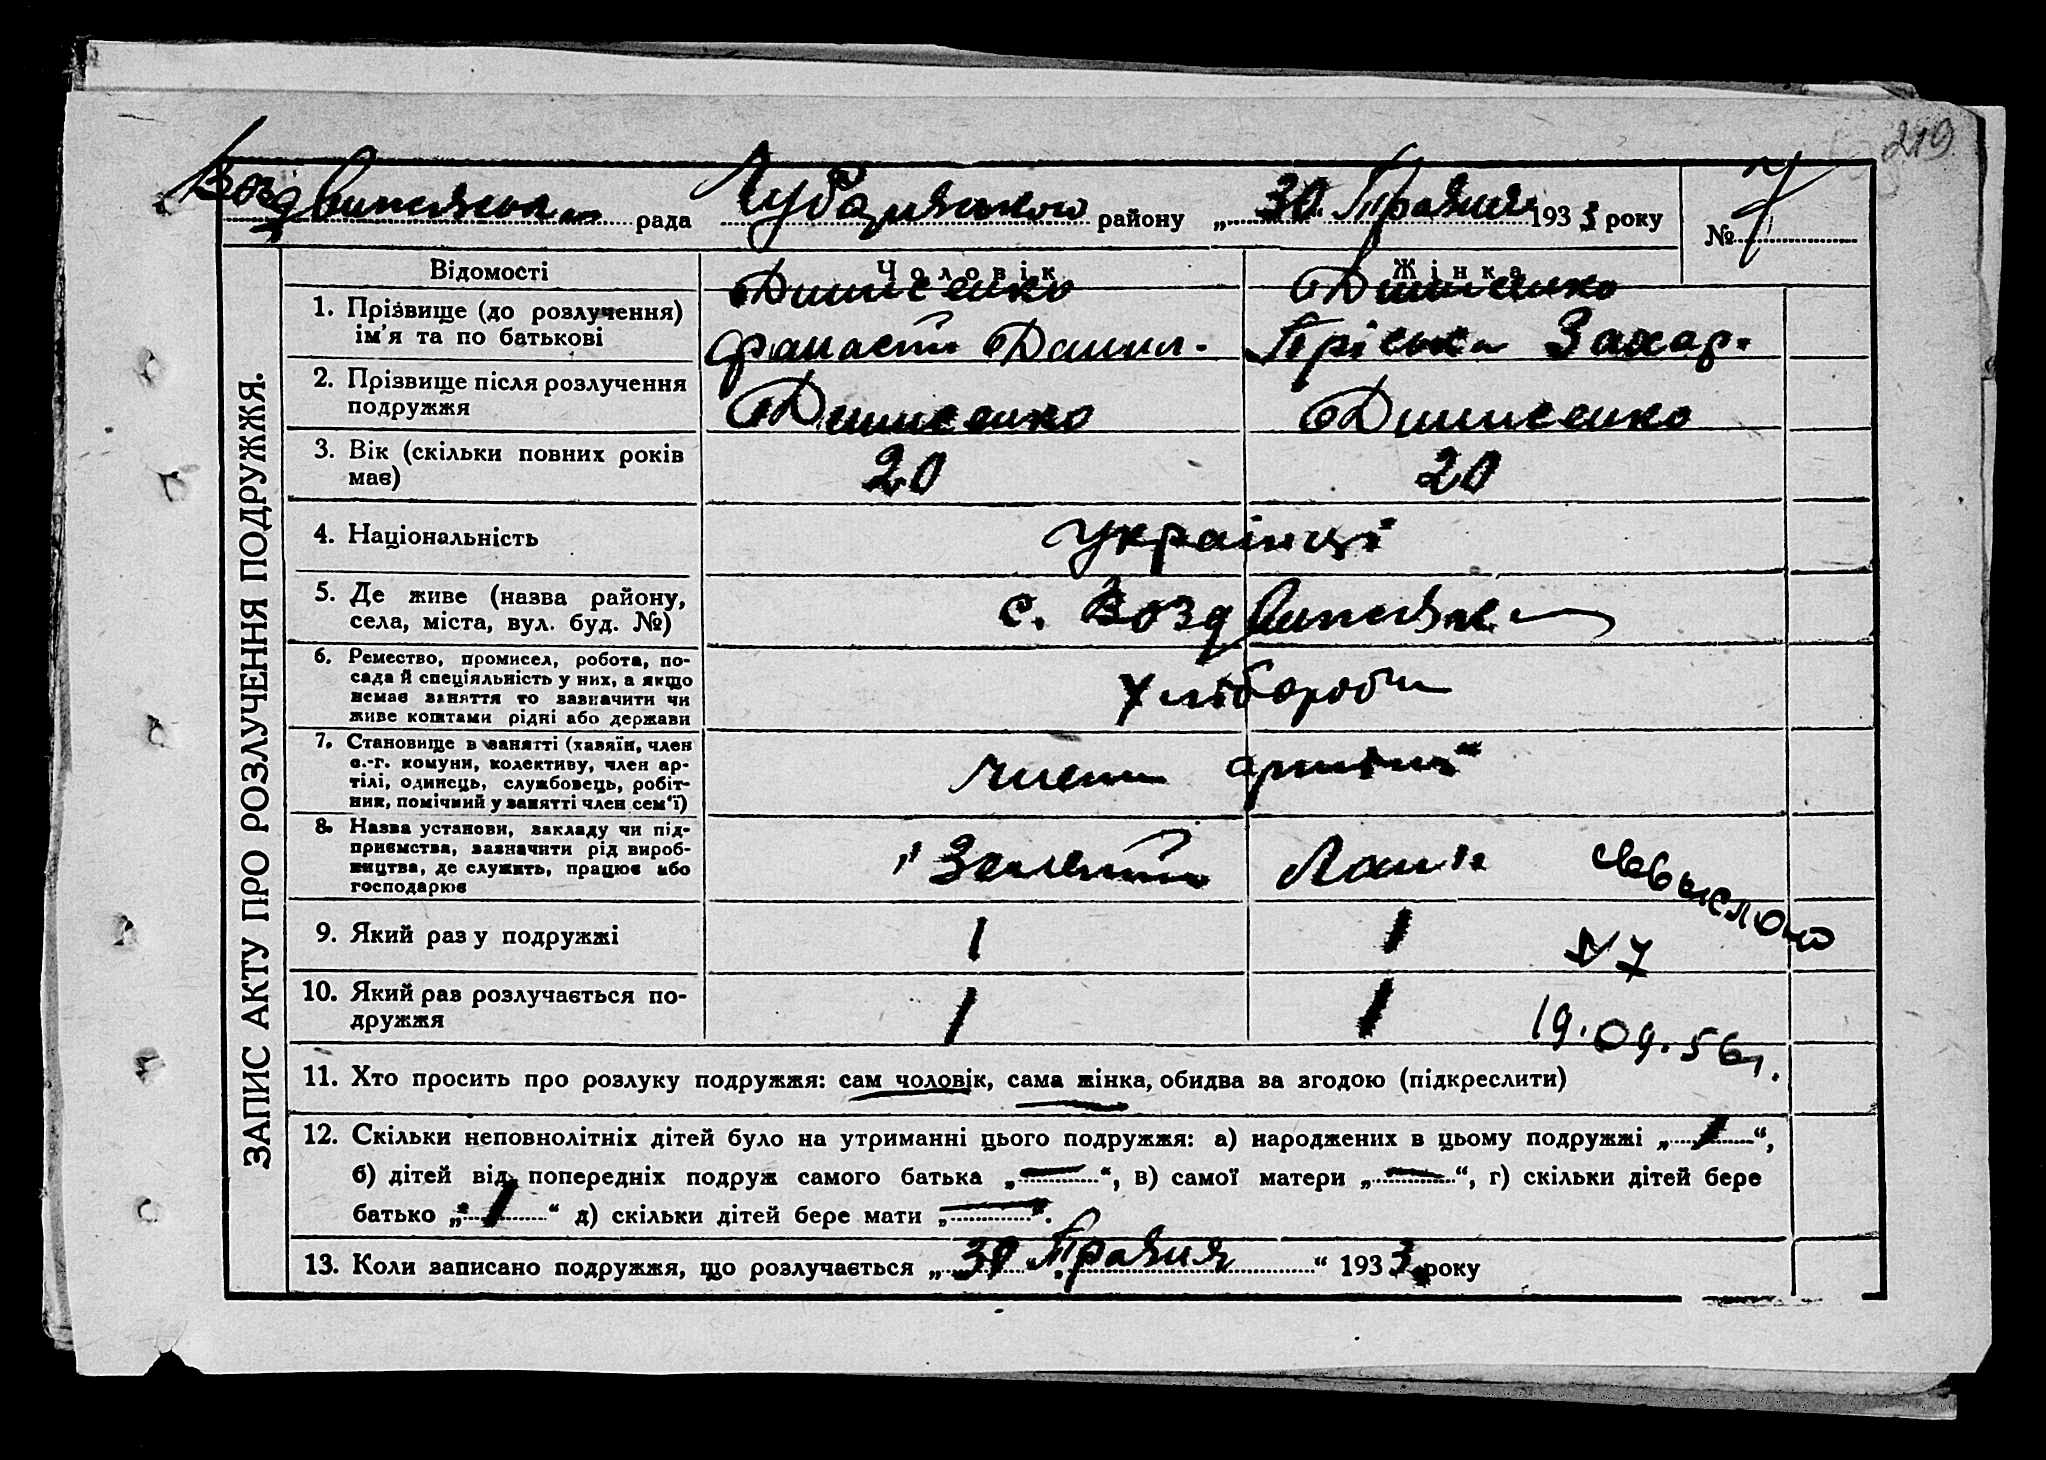 219
Воздвиженська рада Чубарівського району „30" Травня 1933 року № 7
ЗАПИС АКТУ ПРО РОЗЛУЧЕННЯ ПОДРУЖЖЯ.
Відомості Чоловік Жінка
1. Прізвище (до розлучення) ім'я та по батькові
Денисенко Денисенко
Данил. Пріська Захар.
2. Прізвище після розлучення
подружжя
Денисенко Денисенко
3. Вік (скільки повних років
має)
20 20
4. Національність
Українці
5. Де живе (назва району,
села, міста, вул. буд. №)
с. Воздвиженка
6. Ремество, промисел, робота, по-
сада й спеціяльність у них, а якщо
немає заняття то зазначити чи
живе коштами рідні або держави
Хлібороби
7. Становище в занятті (хазяїн, член
с.-г. комуни, колективу, член ар-
тілі, одинець, службовець, робіт-
ник, помічний у занятті член сем'ї)
члени артілі
8. Назва установи, закладу чи під-
приємства, зазначити рід вироб-
ництва, де служить, працює або
господарює
Лан"
9. Який раз у подружжі
1 1
№ 7
10. Який раз розлучається по-
дружжя
1 1
19.09.56г.
11. Хто просить про розлуку подружжя: сам чоловік, сама жінка, обидва за згодою (підкреслити)
12. Скільки неповнолітніх дітей було на утриманні цього подружжя: а) народжених в цьому подружжі „1",
б) дітей від попередніх подруж самого батька „—", в) самої матери „—", г) скільки дітей бере
батько „1" д) скільки дітей бере мати „—".
13. Коли записано подружжя, що розлучається „30 Травня" 1933 року